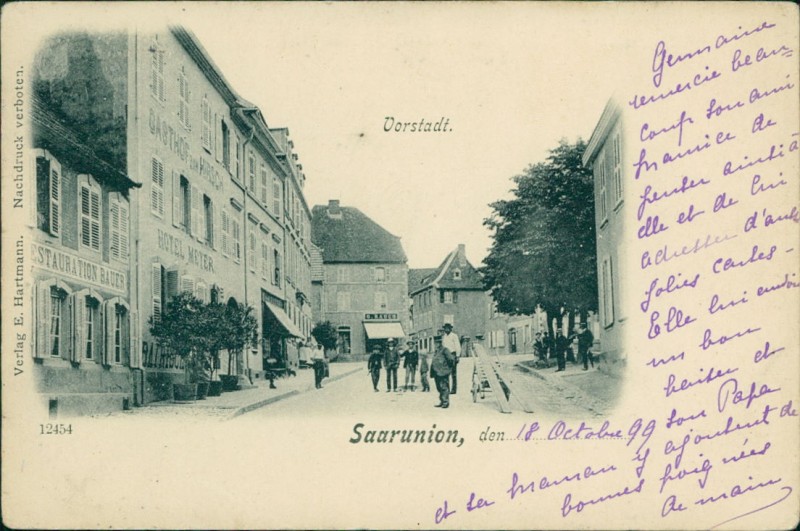 Nachdruck verboten.
Verlag E. Hartmann.
Vorstadt.
GASTHOF ZUM HIRSCH
HOTEL MEYER
RESTAURATION BAUER
12454
Saarunion, den 18 Octobre 99
Germaine
remercie beau-
coup son ami
Maurice de
penser ainsi à
elle et de lui
adresser d'aussi
jolies cartes -
Elle lui envoie
un bon
baiser et
son Papa
et sa maman y ajoutent de
bonnes poignées
de main